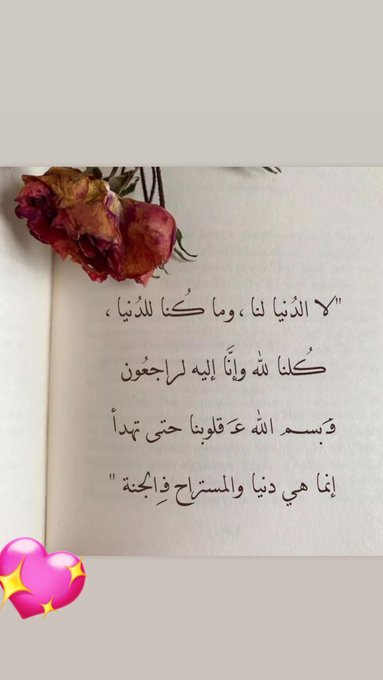 "لا الدُنيا لنا ، وما كُنا للدُنيا ،
كُلنا لله وإنَّا إليه لراجعُون
فَبسم الله عَ قلوبنا حتى تهدأ
إنما هي دنيا والمستراح فِ الجنة "